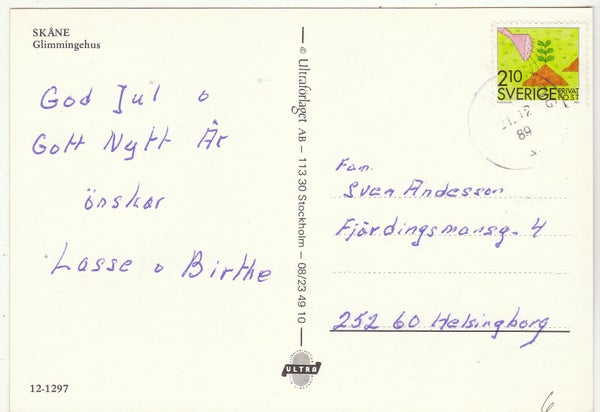 SKÅNE
Glimmingehus
God Jul o
Gott Nytt År
önskar
Lasse o Birthe
12-1297
© Ultraförlaget AB – 113 30 Stockholm – 08/23 49 10
ULTRA
2.10
SVERIGE PRIVAT POST
89
Fam.
Sven Andesson
Fjärdingsmansg. 4
252 60 Helsingborg
6